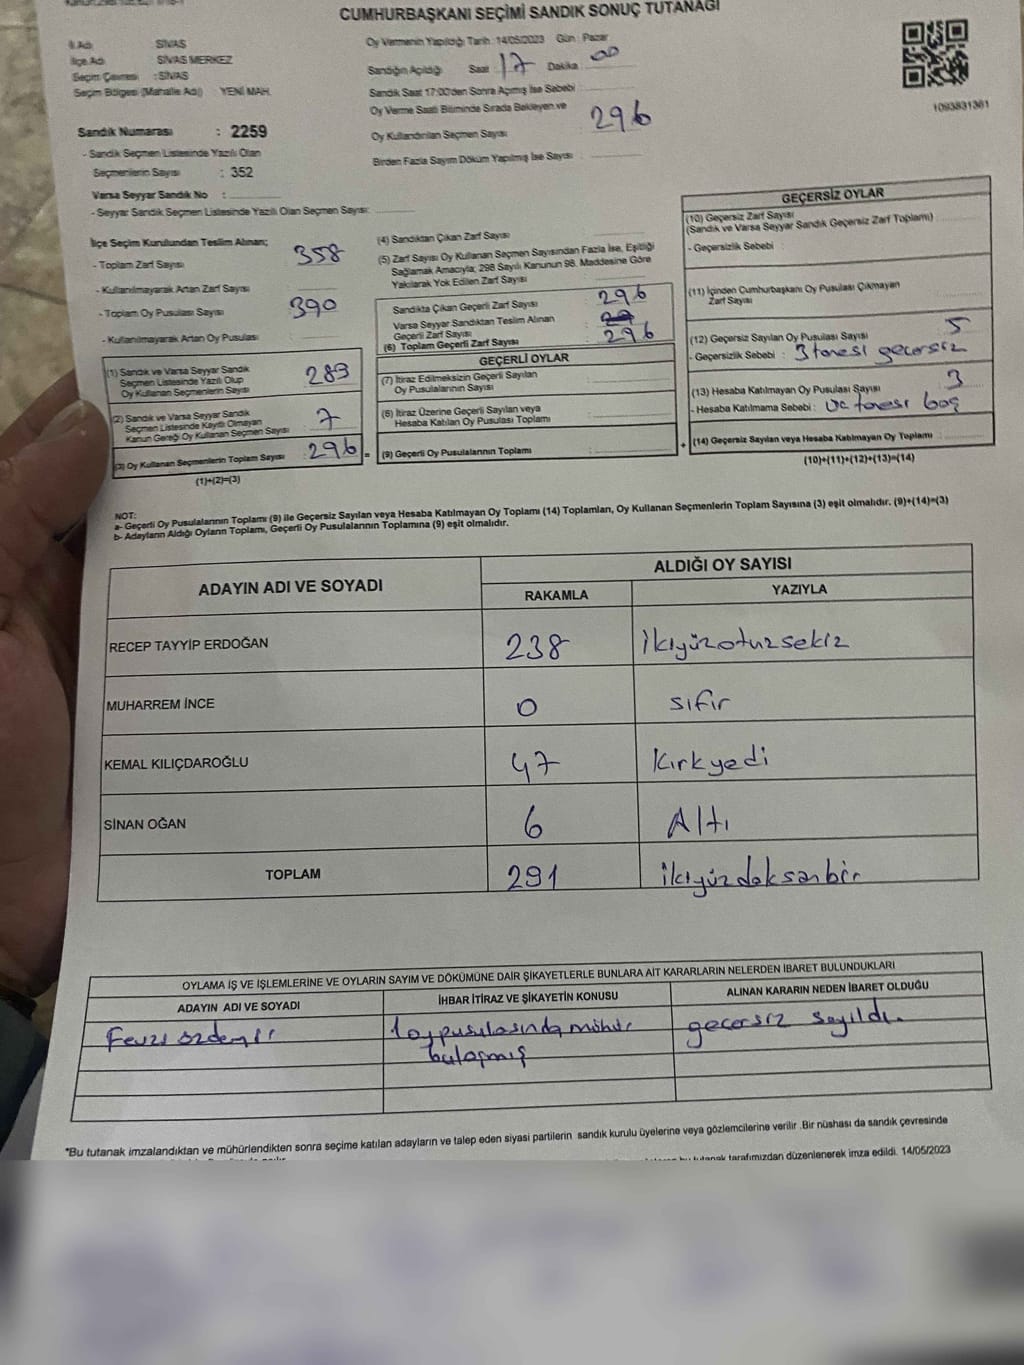 CUMHURBAŞKANI SEÇİMİ SANDIK SONUÇ TUTANAĞI
İl Adı SİVAS
İlçe Adı SİVAS MERKEZ
Seçim Çevresi : SİVAS
Seçim Bölgesi (Mahalle Adı) YENİ MAH.
Oy Vermenin Yapıldığı Tarih : 14/05/2023 Gün : Pazar
Sandığın Açıldığı Saat 17 Dakika 00
Sandık Saat 17:00'den Sonra Açımış İse Sebebi
Oy Verme Saati Bitiminde Sırada Bekleyen ve
Oy Kullandırılan Seçmen Sayısı : 296
Birden Fazla Sayım Döküm Yapılmış İse Sayısı :
1093831361
Sandık Numarası : 2259
- Sandık Seçmen Listesinde Yazılı Olan
Seçmenlerin Sayısı : 352
Varsa Seyyar Sandık No :
- Seyyar Sandık Seçmen Listesinde Yazılı Olan Seçmen Sayısı:
İlçe Seçim Kurulundan Teslim Alınan;
- Toplam Zarf Sayısı 358
- Kullanılmayarak Artan Zarf Sayısı
- Toplam Oy Pusulası Sayısı 390
- Kullanılmayarak Artan Oy Pusulası
(1) Sandık ve Varsa Seyyar Sandık
Seçmen Listesinde Yazılı Olup
Oy Kullanan Seçmenlerin Sayısı : 289
(2) Sandık ve Varsa Seyyar Sandık
Seçmen Listesinde Kayıtlı Olmayan
Kanun Gereği Oy Kullanan Seçmen Sayısı : 7
(3) Oy Kullanan Seçmenlerin Toplam Sayısı : 296 =
(1)+(2)=(3)
(4) Sandıktan Çıkan Zarf Sayısı
(5) Zarf Sayısı Oy Kullanan Seçmen Sayısından Fazla İse, Eşitliği
Sağlamak Amacıyla; 298 Sayılı Kanunun 98. Maddesine Göre
Yakılarak Yok Edilen Zarf Sayısı
Sandıkta Çıkan Geçerli Zarf Sayısı : 296
Varsa Seyyar Sandıktan Teslim Alınan
Geçerli Zarf Sayısı :
(6) Toplam Geçerli Zarf Sayısı : 296
GEÇERLİ OYLAR
(7) İtiraz Edilmeksizin Geçerli Sayılan
Oy Pusulalarının Sayısı :
(8) İtiraz Üzerine Geçerli Sayılan veya
Hesaba Katılan Oy Pusulası Toplamı :
(9) Geçerli Oy Pusulalarının Toplamı : +
GEÇERSİZ OYLAR
(10) Geçersiz Zarf Sayısı
(Sandık ve Varsa Seyyar Sandık Geçersiz Zarf Toplamı)
- Geçersizlik Sebebi :
(11) İçinden Cumhurbaşkanı Oy Pusulası Çıkmayan
Zarf Sayısı
(12) Geçersiz Sayılan Oy Pusulası Sayısı : 5
- Geçersizlik Sebebi : 3 tanesi geçersiz
(13) Hesaba Katılmayan Oy Pusulası Sayısı : 3
- Hesaba Katılmama Sebebi : Üç tanesi boş
(14) Geçersiz Sayılan veya Hesaba Katılmayan Oy Toplamı :
(10)+(11)+(12)+(13)=(14)
NOT:
a- Geçerli Oy Pusulalarının Toplamı (9) ile Geçersiz Sayılan veya Hesaba Katılmayan Oy Toplamı (14) Toplamları, Oy Kullanan Seçmenlerin Toplam Sayısına (3) eşit olmalıdır. (9)+(14)=(3)
b- Adayların Aldığı Oyların Toplamı, Geçerli Oy Pusulalarının Toplamına (9) eşit olmalıdır.
ADAYIN ADI VE SOYADI
ALDIĞI OY SAYISI
RAKAMLA YAZIYLA
RECEP TAYYİP ERDOĞAN 238 İkiyüzotuzsekiz
MUHARREM İNCE 0 sıfır
KEMAL KILIÇDAROĞLU 47 Kırkyedi
SİNAN OĞAN 6 Altı
TOPLAM 291 ikiyüzdoksanbir
OYLAMA İŞ VE İŞLEMLERİNE VE OYLARIN SAYIM VE DÖKÜMÜNE DAİR ŞİKAYETLERLE BUNLARA AİT KARARLARIN NELERDEN İBARET BULUNDUKLARI
ADAYIN ADI VE SOYADI İHBAR İTİRAZ VE ŞİKAYETİN KONUSU ALINAN KARARIN NEDEN İBARET OLDUĞU
Fevzi özdemir 1 oy pusulasında mühür geçersiz sayıldı.
bulaşmış
*Bu tutanak imzalandıktan ve mühürlendikten sonra seçime katılan adayların ve talep eden siyasi partilerin sandık kurulu üyelerine veya gözlemcilerine verilir .Bir nüshası da sandık çevresinde
bu tutanak tarafımızdan düzenlenerek imza edildi. 14/05/2023